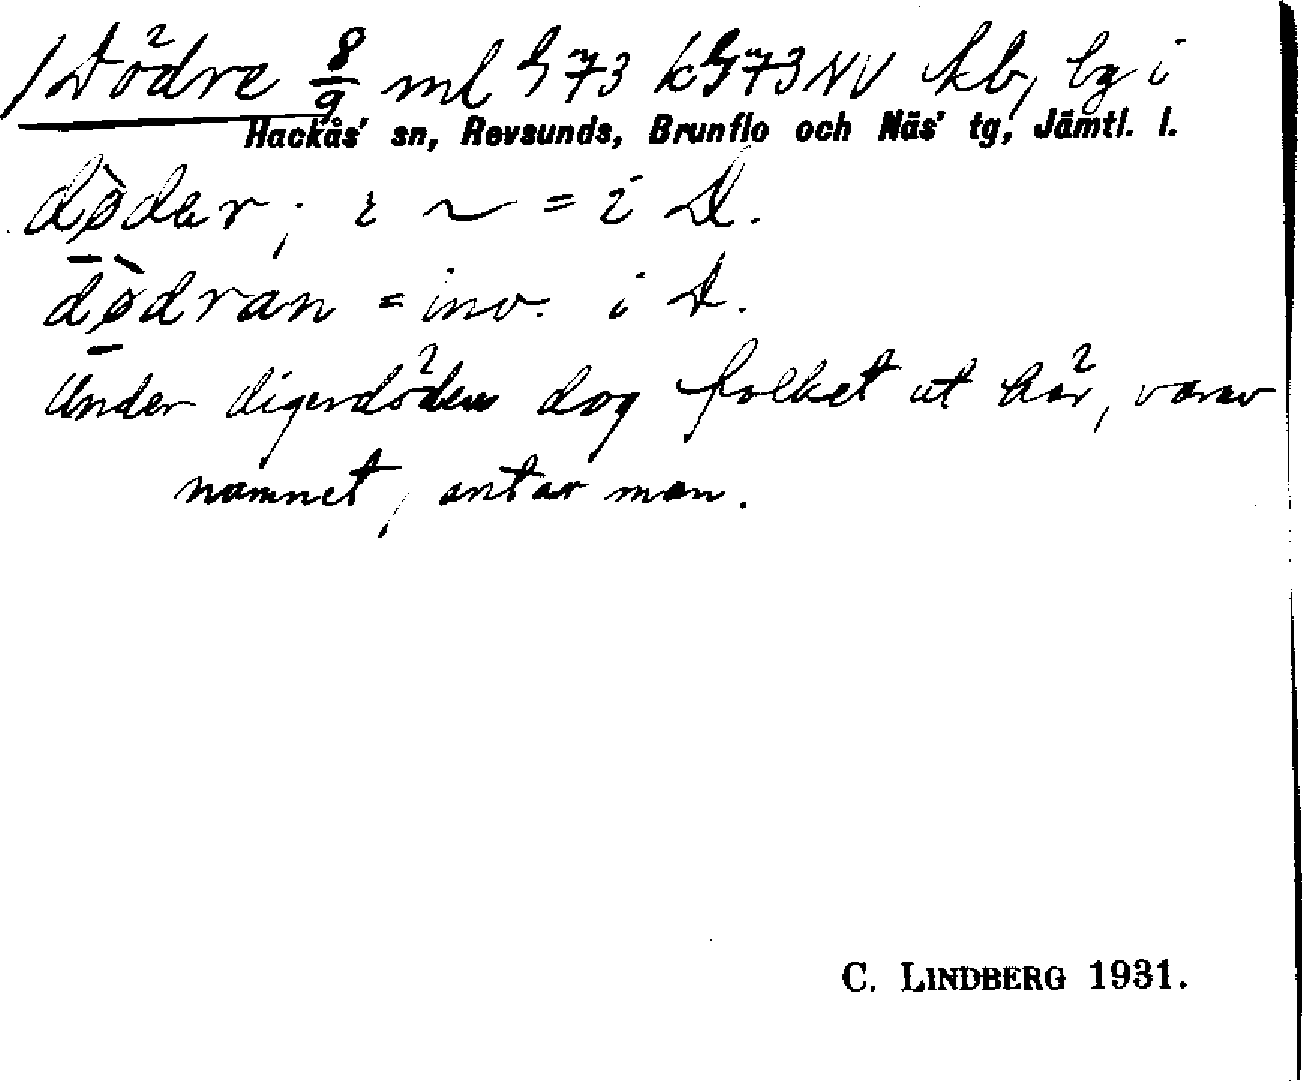 Dödre 8/9 ml G 73 kG 73 NV kb, bg i
Hackås' sn, Revsunds, Brunflo och Näs' tg, Jämtl. l.
dø̀dar; i ~ = i D.
dø̀dran = inv. i D.
Under digerdöden dog folket ut här, varav
namnet, antar man.
C. LINDBERG 1931.